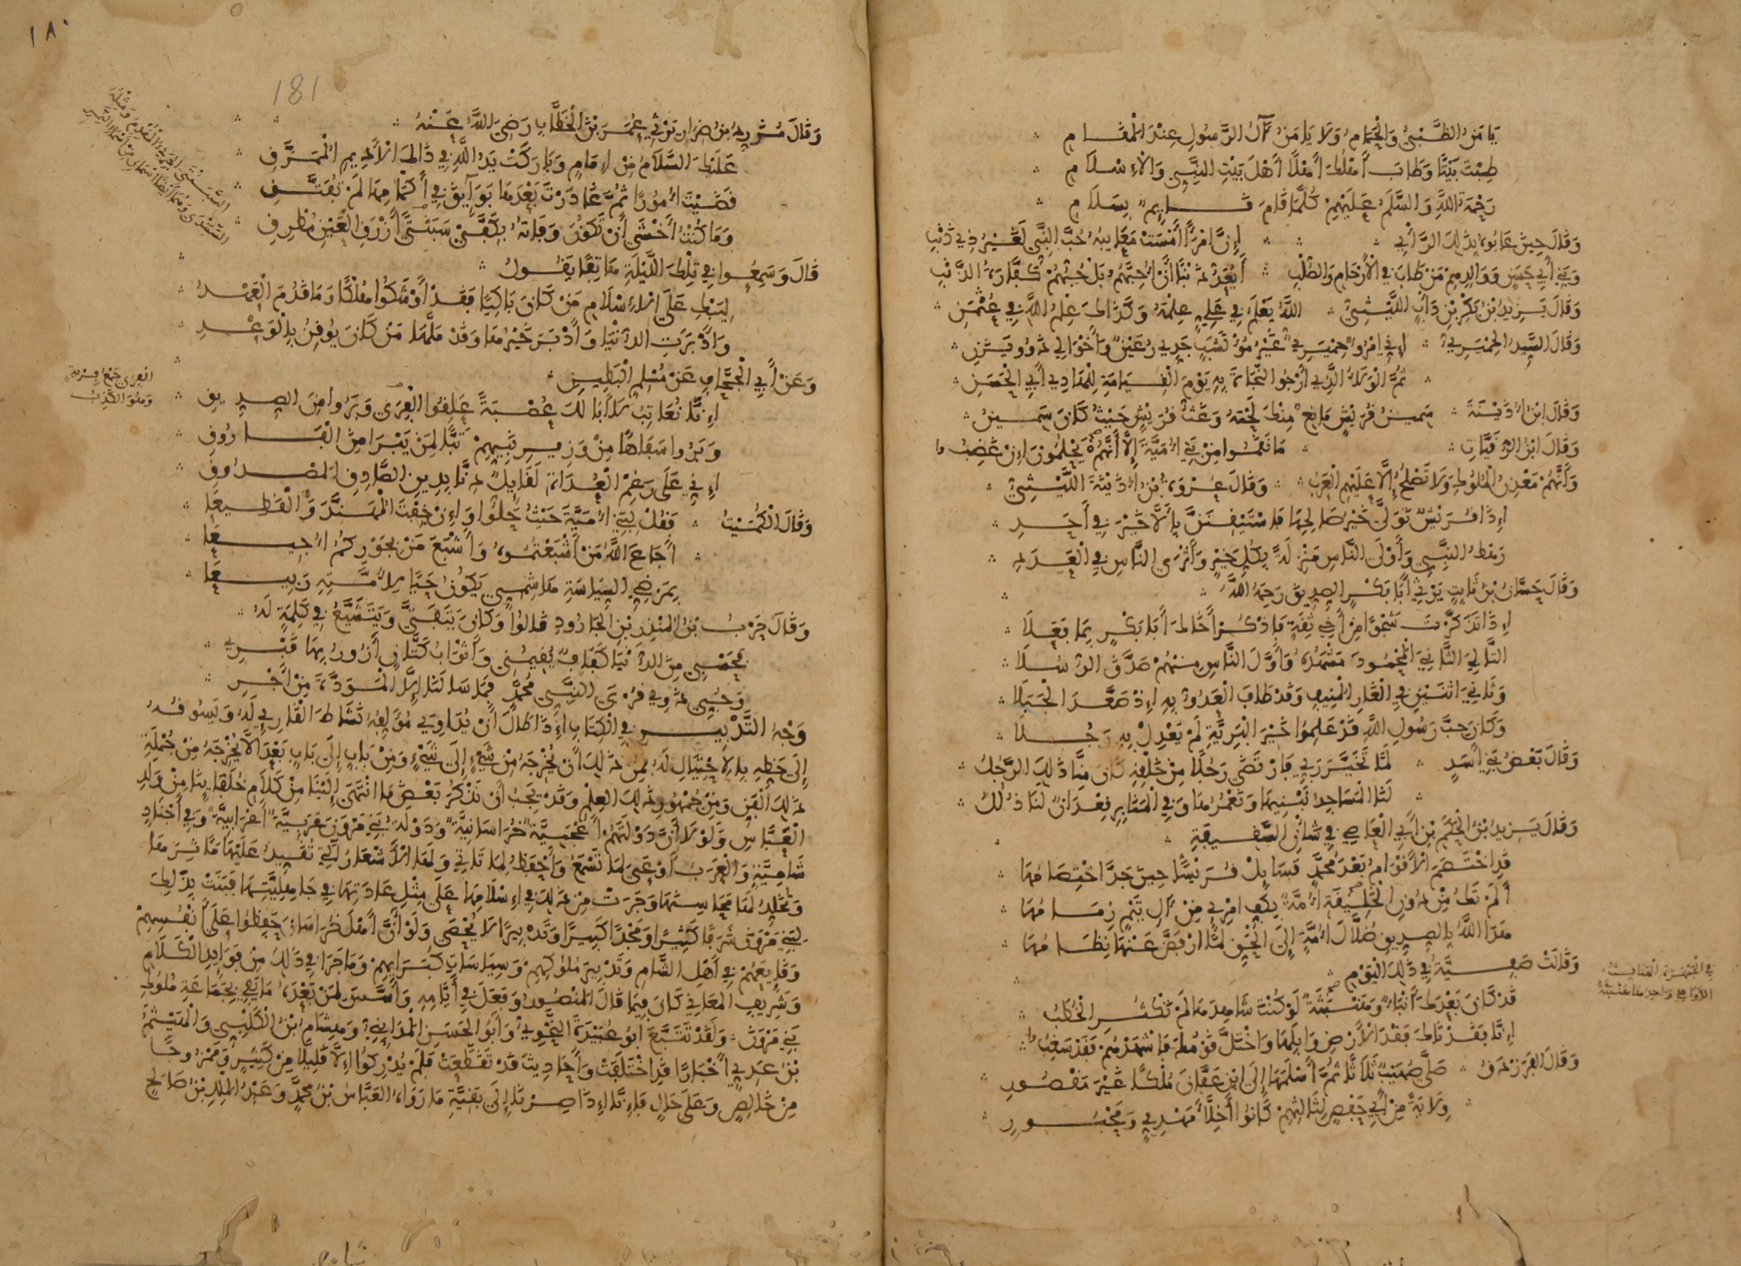 يَأمَنُ الظَّبْيُ وَالْحَمَامُ وَلَا يَأمَنُ آلُ الرَّسُولِ عِنْدَ الْمَقَامِ
طِبْتَ بَيْتًا وَطَابَ أَهْلُكَ أَهْلًا أَهْلَ بَيْتِ النَّبِيِّ وَالْإِسْلَامِ
رَحْمَةُ اللَّهِ وَالسَّلَامُ عَلَيْهِمْ كُلَّمَا قَامَ قَايِمٌ بِسَلَامِ
وَقَالَ حِينَ عَابُوهُ بِذَلِكَ الرَّأْيِ إِنَّ امْرَأً أَمْسَتْ مَعَايِبُهُ حُبَّ النَّبِيِّ لَغَيْرُ ذِي ذَنْبِ
وَبَنِي أَبِي حَسَنٍ وَوَالِدِهِمْ مَنْ طَابَ فِي الْأَرْحَامِ وَالصُّلْبِ أَيُعَدُّ ذَنْبًا أَنْ أُحِبَّهُمُ بَلْ حُبُّهُمْ كَفَّارَةُ الذَّنْبِ
وَقَالَ يَزِيدُ بْنُ بَكْرِ بْنِ دَأْبٍ اللَّيْثِيُّ اللَّهُ يَعْلَمُ فِي عَلِيٍّ عِلْمَهُ وَكَذَاكَ عِلْمُ اللَّهِ فِي عُثْمَنِ
وَقَالَ السَّيِّدُ الْحِمْيَرِيُّ إِنِّي امْرُؤٌ حِمْيَرِيٌّ غَيْرُ مُؤْتَشَبٍ جَدِّي رُعَيْنٌ وَأَخْوَالِي ذَوُو يَزَنِ
ثُمَّ الْوَلَاءُ الَّذِي أَرْجُو النَّجَاةَ بِهِ يَوْمَ الْقِيَامَةِ لِلْهَادِي أَبِي الْحَسَنِ
وَقَالَ ابْنُ أُذَيْنَةَ سَمِينُ قُرَيْشٍ مَانِعٌ مِنْكَ لَحْمَهُ وَغَثُّ قُرَيْشٍ حَيْثُ كَانَ سَمِينُ
وَقَالَ ابْنُ الرُّقَيَّاتِ مَا نَقَمُوا مِنْ بَنِي أُمَيَّةَ إِلَّا أَنَّهُمْ يَحْلُمُونَ إِنْ غَضِبُوا
وَأَنَّهُمْ مَعْدِنُ الْمُلُوكِ وَلَا تَصْلُحُ إِلَّا عَلَيْهِمُ الْعَرَبُ وَقَالَ عُرْوَةُ بْنُ أُذَيْنَةَ اللَّيْثِيُّ
إِذَا قُرَيْشٌ تَوَلَّى خَيْرُ صَالِحِهَا فَاسْتَيْقِنَنَّ بِأَلَّا خَيْرَ فِي أَحَدِ
رَهْطُ النَّبِيِّ وَأَوْلَى النَّاسِ مَنْزِلَةً بِكُلِّ خَيْرٍ وَأَثْرَى النَّاسِ فِي الْعَدَدِ
وَقَالَ حَسَّانُ بْنُ ثَابِتٍ يَرْثِي أَبَا بَكْرٍ الصِّدِّيقَ رَحِمَهُ اللَّهُ
إِذَا تَذَكَّرْتَ شَجْوًا مِنْ أَخِي ثِقَةٍ فَاذْكُرْ أَخَاكَ أَبَا بَكْرٍ بِمَا فَعَلَا
التَّالِيَ الثَّانِيَ الْمَحْمُودَ مَشْهَدُهُ وَأَوَّلَ النَّاسِ مِنْهُمْ صَدَّقَ الرُّسُلَا
وَثَانِيَ اثْنَيْنِ فِي الْغَارِ الْمُنِيفِ وَقَدْ طَافَ الْعَدُوُّ بِهِ إِذْ صَعَّدَ الْجَبَلَا
وَكَانَ حِبَّ رَسُولِ اللَّهِ قَدْ عَلِمُوا خَيْرَ الْبَرِيَّةِ لَمْ يَعْدِلْ بِهِ رَجُلَا
وَقَالَ بَعْضُ بَنِي أَسَدٍ لَمَّا تَخَيَّرَ رَبِّي فَارْتَضَى رَجُلًا مِنْ خَلْقِهِ كَانَ مِنَّا ذَلِكَ الرَّجُلُ
لَنَا الْمَسَاجِدُ نَبْنِيهَا وَنَعْمُرُهَا وَفِي الْمَنَابِرِ قِعْدَانٌ لَنَا ذُلُلُ
وَقَالَ يَزِيدُ بْنُ الْحَكَمِ بْنِ أَبِي الْعَاصِي فِي شَأْنِ السَّقِيفَةِ
قَدِ اخْتَصَمَ الْأَقْوَامُ بَعْدَ مُحَمَّدٍ فَسَايِلْ قُرَيْشًا حِينَ جَدَّ اخْتِصَامُهَا
أَلَمْ تَكُ مِنْ دُونِ الْخَلِيقَةِ أُمَّةٌ بِكَفِّ امْرِئٍ مِنْ آلِ تَيْمٍ زِمَامُهَا
هَدَى اللَّهُ بِالصِّدِّيقِ ضُلَّالَ أُمَّةٍ إِلَى الْحَقِّ لَمَّا ارْفَضَّ عَنْهَا نِظَامُهَا
وَقَالَتْ صَفِيَّةُ فِي ذَلِكَ الْيَوْمِ
قَدْ كَانَ بَعْدَكَ أَنْبَاءٌ وَهَنْبَثَةٌ لَوْ كُنْتَ شَاهِدَهَا لَمْ تَكْثُرِ الْخُطَبُ
إِنَّا فَقَدْنَاكَ فَقْدَ الْأَرْضِ وَابِلَهَا وَاخْتَلَّ قَوْمُكَ فَاشْهَدْهُمْ فَقَدْ سَغَبُوا
وَقَالَ الْفَرَزْدَقُ صَلَّى صُهَيْبٌ ثَلَاثًا ثُمَّ أَسْلَمَهَا إِلَى ابْنِ عَفَّانَ مُلْكًا غَيْرَ مَقْصُورِ
وِلَايَةً مِنْ أَبِي حَفْصٍ لِثَالِثِهِمْ كَانُوا أَخِلَّاءَ مَهْدِيٍّ وَمَحْبُورِ
١٨٠
181
وَقَالَ مُزَرِّدُ بْنُ ضِرَارٍ يَرْثِي عُمَرَ بْنَ الْخَطَّابِ رَضِيَ اللَّهُ عَنْهُ
عَلَيْكَ السَّلَامُ مِنْ إِمَامٍ وَبَارَكَتْ يَدُ اللَّهِ فِي ذَاكَ الْأَدِيمِ الْمُمَزَّقِ
قَضَيْتَ أُمُورًا ثُمَّ غَادَرْتَ بَعْدَهَا بَوَايِقَ فِي أَكْمَامِهَا لَمْ تُفَتَّقِ
وَمَا كُنْتُ أَخْشَى أَنْ تَكُونَ وَفَاتُهُ بِكَفَّيْ سَبَنْتَى أَزْرَقِ الْعَيْنِ مُطْرِقِ
قَالَ وَسَمِعُوا فِي تِلْكَ اللَّيْلَةِ هَاتِفًا يَقُولُ
لِيَبْكِ عَلَى الْإِسْلَامِ مَنْ كَانَ بَاكِيًا فَقَدْ أَوْشَكُوا هُلْكًا وَمَا قَدُمَ الْعَهْدُ
وَأَدْبَرَتِ الدُّنْيَا وَأَدْبَرَ خَيْرُهَا وَقَدْ مَلَّهَا مَنْ كَانَ يُوقِنُ بِالْوَعْدِ
وَعَنْ أَبِي الْجَحَّافِ عَنْ مُسْلِمٍ الْبَطِينِ
إِنَّا نُعَاتِبُ لَا أَبَا لَكَ عُصْبَةً عَلِقُوا الْفِرَى وَبَرُوا مِنَ الصِّدِّيقِ
وَبَرُوا سَفَاهًا مِنْ وَزِيرِ نَبِيِّهِمْ تَبًّا لِمَنْ يَبْرَا مِنَ الْفَارُوقِ
إِنِّي عَلَى رَغْمِ الْعُدَاةِ لَقَايِلٌ دَانَا بِدِينِ الصَّادِقِ الْمَصْدُوقِ
وَقَالَ الْكُمَيْتُ فَقُلْ لِبَنِي أُمَيَّةَ حَيْثُ حَلُّوا وَإِنْ خِفْتَ الْمُهَنَّدَ وَالْقَطِيعَا
أَجَاعَ اللَّهُ مَنْ أَشْبَعْتُمُوهُ وَأَشْبَعَ مَنْ بِجَوْرِكُمُ أُجِيعَا
بِمَرْضِيِّ السِّيَاسَةِ هَاشِمِيٍّ يَكُونُ حَيًا لِأُمَّتِهِ رَبِيعَا
وَقَالَ حَرْبُ بْنُ الْمُنْذِرِ بْنِ الْجَارُودِ قَالُوا وَكَانَ يَتَفَتَّى وَيَتَشَيَّعُ فِي كَلِمَةٍ لَهُ
فَحَسْبِي مِنَ الدُّنْيَا كَفَافٌ يُقِيمُنِي وَأَثْوَابُ كَتَّانٍ أَزُورُ بِهَا قَبْرِي
وَحُبِّي ذَوِي قُرْبَى النَّبِيِّ مُحَمَّدٍ فَمَا سَالَنَا إِلَّا الْمَوَدَّةَ مِنْ أَجْرِ
وَجْهُ التَّدْبِيرِ فِي الْكِتَابِ إِذَا طَالَ أَنْ يُدَاوِيَ مُؤَلِّفُهُ نَشَاطَ الْقَارِي لَهُ وَيَسُوقُهُ
إِلَى حَظِّهِ بِالِاحْتِيَالِ لَهُ فَمِنْ ذَلِكَ أَنْ يُخْرِجَهُ مِنْ شَيْءٍ إِلَى شَيْءٍ وَمِنْ بَابٍ إِلَى بَابٍ بَعْدَ أَلَّا يُخْرِجَهُ مِنْ جُمْلَةِ
ذَلِكَ الْفَنِّ وَمِنْ جُمْهُورِ ذَلِكَ الْعِلْمِ وَقَدْ يَجِبُ أَنْ نَذْكُرَ بَعْضَ مَا انْتَهَى إِلَيْنَا مِنْ كَلَامِ خُلَفَايِنَا مِنْ وَلَدِ
الْعَبَّاسِ وَلَوْ لَا أَنَّ دَوْلَتَهُمْ أَعْجَمِيَّةٌ خُرَاسَانِيَّةٌ وَدَوْلَةُ بَنِي مَرْوَنَ عَرَبِيَّةٌ أَعْرَابِيَّةٌ وَفِي أَجْنَادٍ
شَامِيَّةٍ وَالْعَرَبُ أَوْعَى لِمَا تَسْمَعُ وَأَحْفَظُ لِمَا تَاتِي وَلَهَا الْأَشْعَارُ الَّتِي تُقَيِّدُ عَلَيْهَا مَآثِرَهَا
وَتُخَلِّدُ لَهَا مَحَاسِنَهَا وَجَرَتْ مِنْ ذَلِكَ فِي إِسْلَامِهَا عَلَى مِثْلِ عَادَتِهَا فِي جَاهِلِيَّتِهَا فَبَنَتْ بِذَلِكَ
لِبَنِي مَرْوَنَ شَرَفًا كَثِيرًا وَمَجْدًا كَبِيرًا وَتَدْبِيرًا لَا يُحْصَى وَلَوْ أَنَّ أَهْلَ خُرَاسَانَ حَفِظُوا عَلَى أَنْفُسِهِمْ
وَقَايِعَهُمْ فِي أَهْلِ الشَّامِ وَتَدْبِيرَ مُلُوكِهِمْ وَسِيَاسَاتِ كُبَرَايِهِمْ وَمَا جَرَى فِي ذَلِكَ مِنْ فَوَايِدِ الْكَلَامِ
وَشَرِيفِ الْمَعَانِي كَانَ فِيمَا قَالَ الْمَنْصُورُ وَفَعَلَ فِي أَيَّامِهِ وَأَسَّسَ لِمَنْ بَعْدَهُ مَا يَفِي بِجَمَاعَةِ مُلُوكِ
بَنِي مَرْوَنَ وَلَقَدْ تَتَبَّعَ أَبُو عُبَيْدَةَ النَّحْوِيُّ وَأَبُو الْحَسَنِ الْمَدَايِنِيُّ وَهِشَامُ بْنُ الْكَلْبِيِّ وَالْهَيْثَمُ
بْنُ عَدِيٍّ أَخْبَارًا قَدِ اخْتَلَفَتْ وَأَحَادِيثَ قَدْ تَقَطَّعَتْ فَلَمْ يُدْرِكُوا إِلَّا قَلِيلًا مِنْ كَثِيرٍ وَمَمْزُوجًا
مِنْ خَالِصٍ وَعَلَى حَالٍ فَإِنَّا إِذَا صِرْنَا إِلَى بَقِيَّةِ مَا رَوَاهُ الْعَبَّاسُ بْنُ مُحَمَّدٍ وَعَبْدُ الْمَلِكِ بْنُ صَالِحٍ
الفرى جمع فرية
وهو الكذب